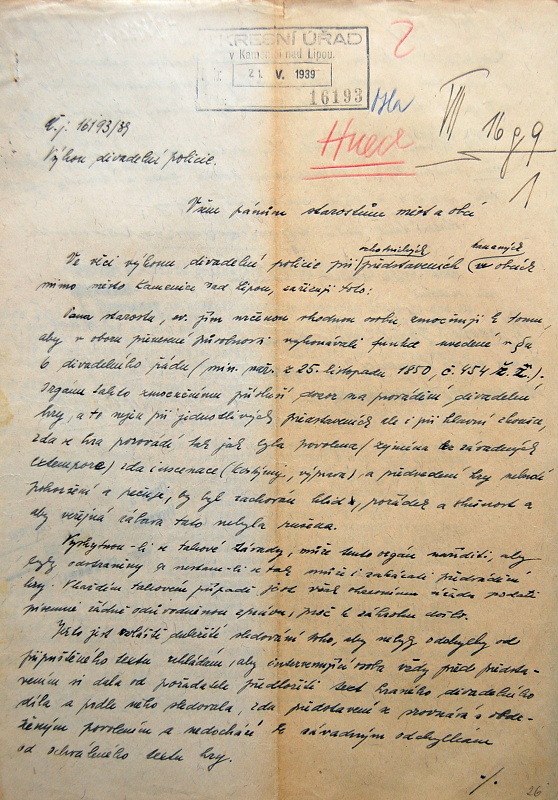 OKRESNÍ ÚŘAD
v Kamenici nad Lipou.
21. V. 1939
16193
2
Hned
VII 16 g 9
1
Č.j. 16193/39
Výkon divadelní policie.
Všem pánům starostům měst a obcí
Ve věci výkonu divadelní policie při ochotnických představeních konaných v obcích
mimo město Kamenice nad Lipou, zařizuji toto:
Pana starostu, ev. jím určenou vhodnou osobu zmocňuji k tomu,
aby v oboru přenesené působnosti vykonávali funkce uvedené v §u
6 divadelního řádu /min. nař. z 25. listopadu 1850, č. 454 ř. z./.
Orgánu takto zmocněnému přísluší dozor na provádění divadelní
hry, a to nejen při jednotlivých představeních ale i při hlavní zkoušce,
zda se hra provozuje tak jak byla povolena / zejména bez závadných
extempore/ zda inscenace (kostymy, výprava) a předvedení hry nebudí
pohoršení a pečuje, by byl zachován klid, pořádek a slušnost a
aby veřejná zábava tato nebyla rušena.
Vyskytnou-li se takové závady, může tento orgán naříditi, aby
byly odstraněny a nestane-li se tak může i zakázati předvádění
hry. V každém takovém případě jest však okresnímu úřadu podati
písemně řádně odůvodněnou zprávu, proč k zákroku došlo.
Jest zvláště důležité sledování toho, aby nebylo odchylky od
připuštěného textu vzhledem, aby intervenující osoba vždy před předsta-
vením si dala od pořadatele předložiti text hraného divadelního
díla a podle něho sledovala, zda představení se srovnává s obdr-
ženým povolením a nedochází k závadným odchylkám
od schváleného textu hry.
./.
26